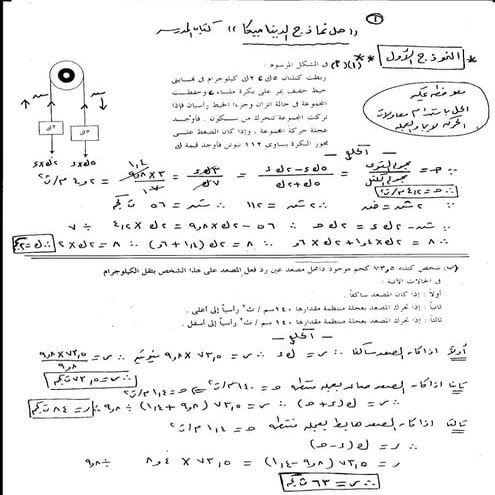 ١
(( حل نماذج الديناميكا )) كتاب المدرسه
النموذج الأول ** (١) (أ) في الشكل المرسوم :
ربطت كتلتان ٥ك ، ٢ك كيلوجرام في نهايتي
خيط خفيف يمر على بكرة ملساء ، وحفظت
المجموعة في حالة اتزان وجزءا الخيط رأسيان فإذا
تركت المجموعة تتحرك من سكون . فأوجد
عجلة حركة المجموعة ، وإذا كان الضغط على
محور البكرة يساوى ١١٢ نيوتن فأوجد قيمة ك
ملحوظه عليه
الحل باستخدام معادلات
٢ك
٥ك
٢ك٤ ٥ك٤
ـ الحل ـ
∴ حـ = مجموع القوى / مجموع الكتل = ٥ك٤ - ٢ك٤ / ٥ك + ٢ك = ٣ك٤ / ٧ك = ٣ × ٩٫٨ / ٧ = ٤٫٢ م/ث٢
∴ حـ = ٤٫٢ م/ث٢
∵ ٢شـ = ضـ ∴ ٢شـ = ١١٢ ∴ شـ = ٥٦
∵ شـ - ٢ك٤ = ٢ك حـ ∴ ٥٦ - ٢ك × ٩٫٨ = ٢ك × ٤٫٢ ÷ ٧
(ب) شخص كتلته ٧٣٫٥ كجم موجود داخل مصعد عين رد فعل المصعد على هذا الشخص بثقل الكيلوجرام
في الحالات الآتية :
أولاً : إذا كان المصعد ساكناً .
ثانياً : إذا تحرك المصعد بعجلة منتظمة مقدارها ١٤٠سم / ث٢ رأسياً إلى أعلى .
ثالثاً : إذا تحرك المصعد بعجلة منتظمة مقدارها ١٤٠سم / ث٢ رأسياً إلى أسفل .
ـ الحل ـ
أولاً اذا كان المصعد ساكنا ∴ ر = ك٤ ∴ ر = ٧٣٫٥ × ٩٫٨ نيوتن ∴ ر = ٧٣٫٥ × ٩٫٨ / ٩٫٨
∴ ر = ٧٣٫٥ ث كجم
ثانيا اذا كان المصعد صاعد بعجله منتظمه حـ = ١٤٠سم/ث٢ ⇐ حـ = ١٫٤ م/ث٢
∴ ر = ك (٤ + حـ) ∴ ر = ٧٣٫٥ (٩٫٨ + ١٫٤) ÷ ٩٫٨ ∴ ر = ٨٤ ث كجم
ثالثا اذا كان المصعد هابط بعجله منتظمه حـ = ١٫٤ م/ث٢
∴ ر = ك (٤ - حـ)
ر = ٧٣٫٥ (٩٫٨ - ١٫٤) = ٧٣٫٥ × ٨٫٤ ÷ ٩٫٨
∴ ر = ٦٣ ث كجم